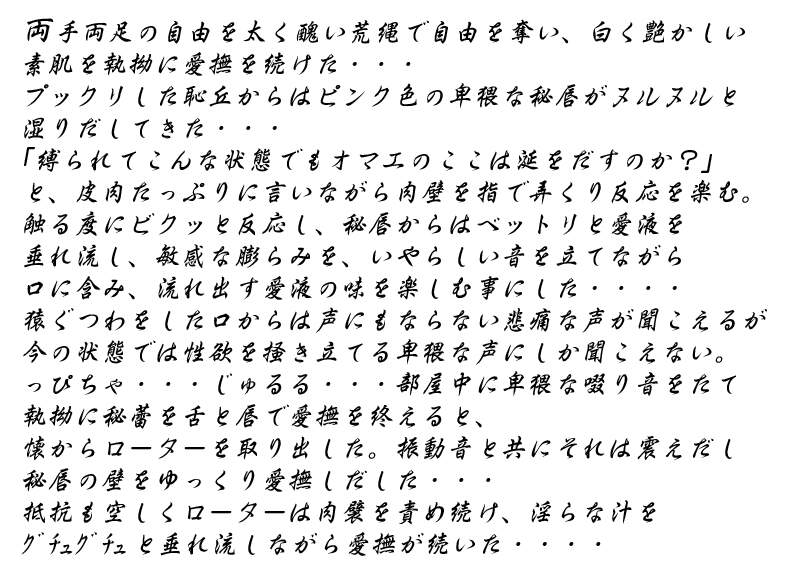 両手両足の自由を太く醜い荒縄で自由を奪い、白く艶かしい
素肌を執拗に愛撫を続けた・・・
プックリした恥丘からはピンク色の卑猥な秘唇がヌルヌルと
湿りだしてきた・・・
「縛られてこんな状態でもオマエのここは涎をだすのか？」
と、皮肉たっぷりに言いながら肉壁を指で弄くり反応を楽む。
触る度にビクッと反応し、秘唇からはベットリと愛液を
垂れ流し、敏感な膨らみを、いやらしい音を立てながら
口に含み、流れ出す愛液の味を楽しむ事にした・・・・
猿ぐつわをした口からは声にもならない悲痛な声が聞こえるが
今の状態では性欲を掻き立てる卑猥な声にしか聞こえない。
っぴちゃ・・・じゅるる・・・部屋中に卑猥な啜り音をたて
執拗に秘蕾を舌と唇で愛撫を終えると、
懐からローターを取り出した。振動音と共にそれは震えだし
秘唇の壁をゆっくり愛撫しだした・・・
抵抗も空しくローターは肉襞を責め続け、淫らな汁を
グチュグチュと垂れ流しながら愛撫が続いた・・・・